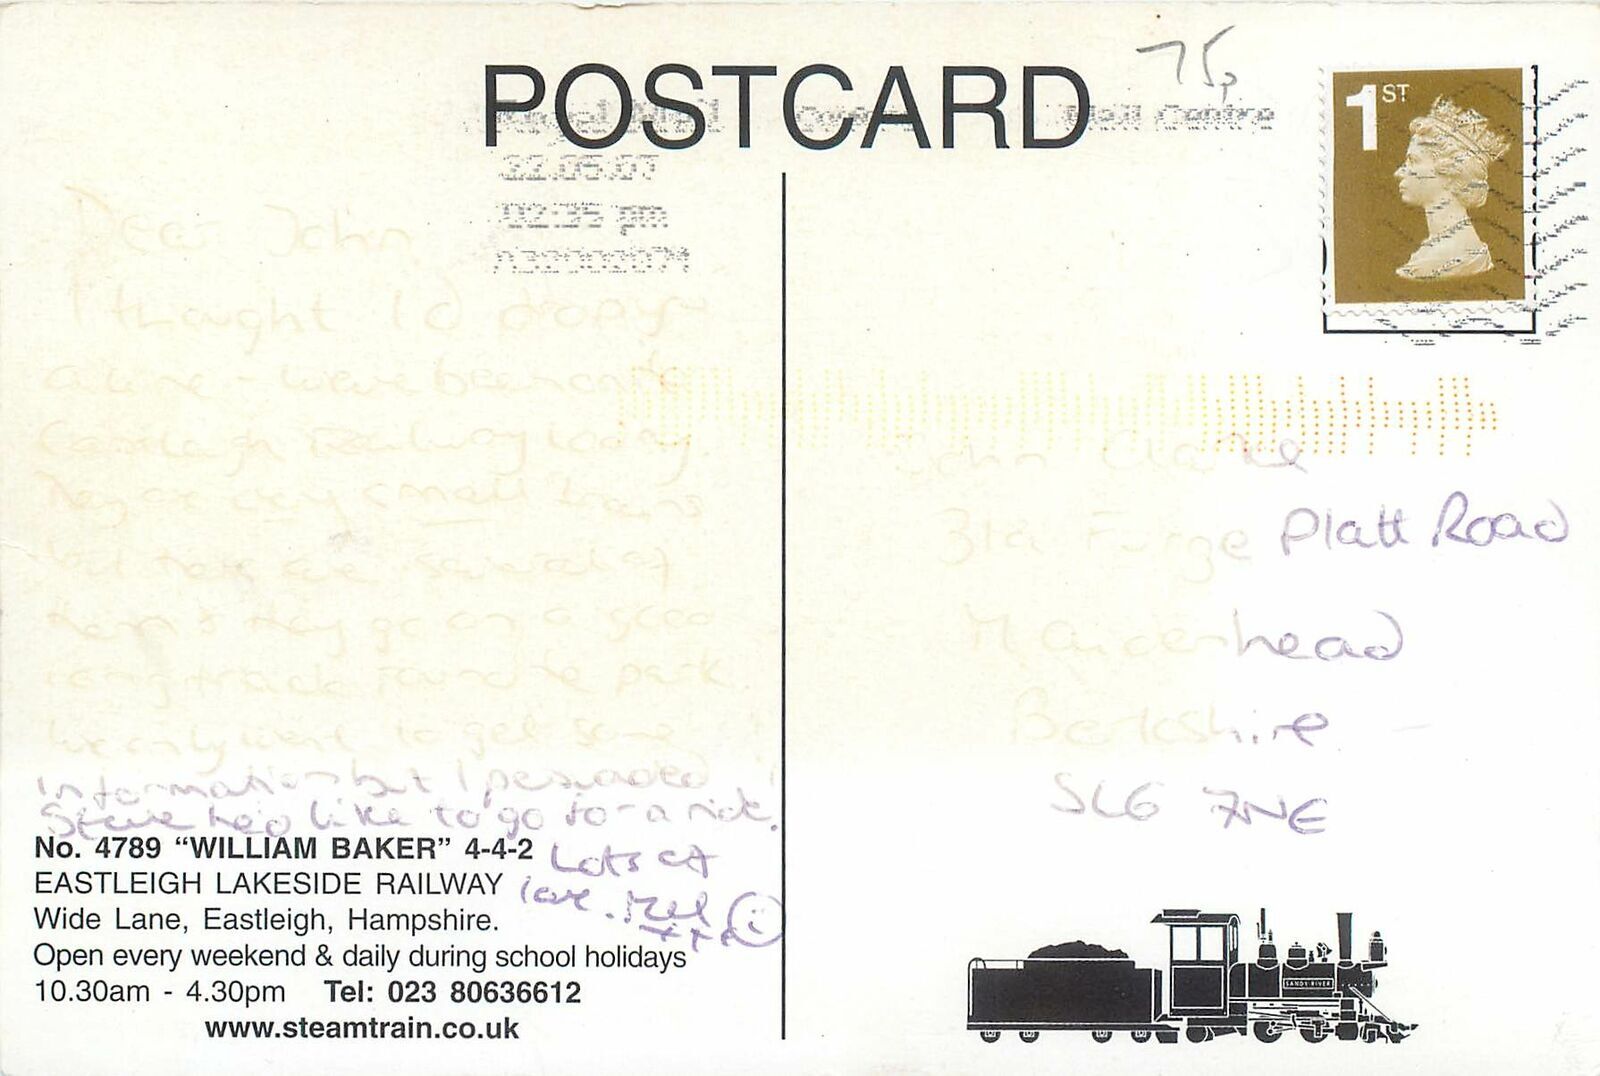 POSTCARD
75p
Royal Mail
Mail Centre
22.05.07
02:35 pm
1ST
Dear John
I thought I'd drop y-
a line - we've been onto
Eastleigh Railway today.
They are very small trains
but there are several of
them & they go on a good
long track round the park
We only went to get some
information but I persuaded
Steve he'd like to go for a ride.
Lots of
love. Mel
xxx
John Clarke
Furze Platt Road
Maidenhead
Berkshire
SL6 7NE
No. 4789 “WILLIAM BAKER” 4-4-2
EASTLEIGH LAKESIDE RAILWAY
Wide Lane, Eastleigh, Hampshire.
Open every weekend & daily during school holidays
10.30am - 4.30pm Tel: 023 80636612
www.steamtrain.co.uk
SANDY RIVER